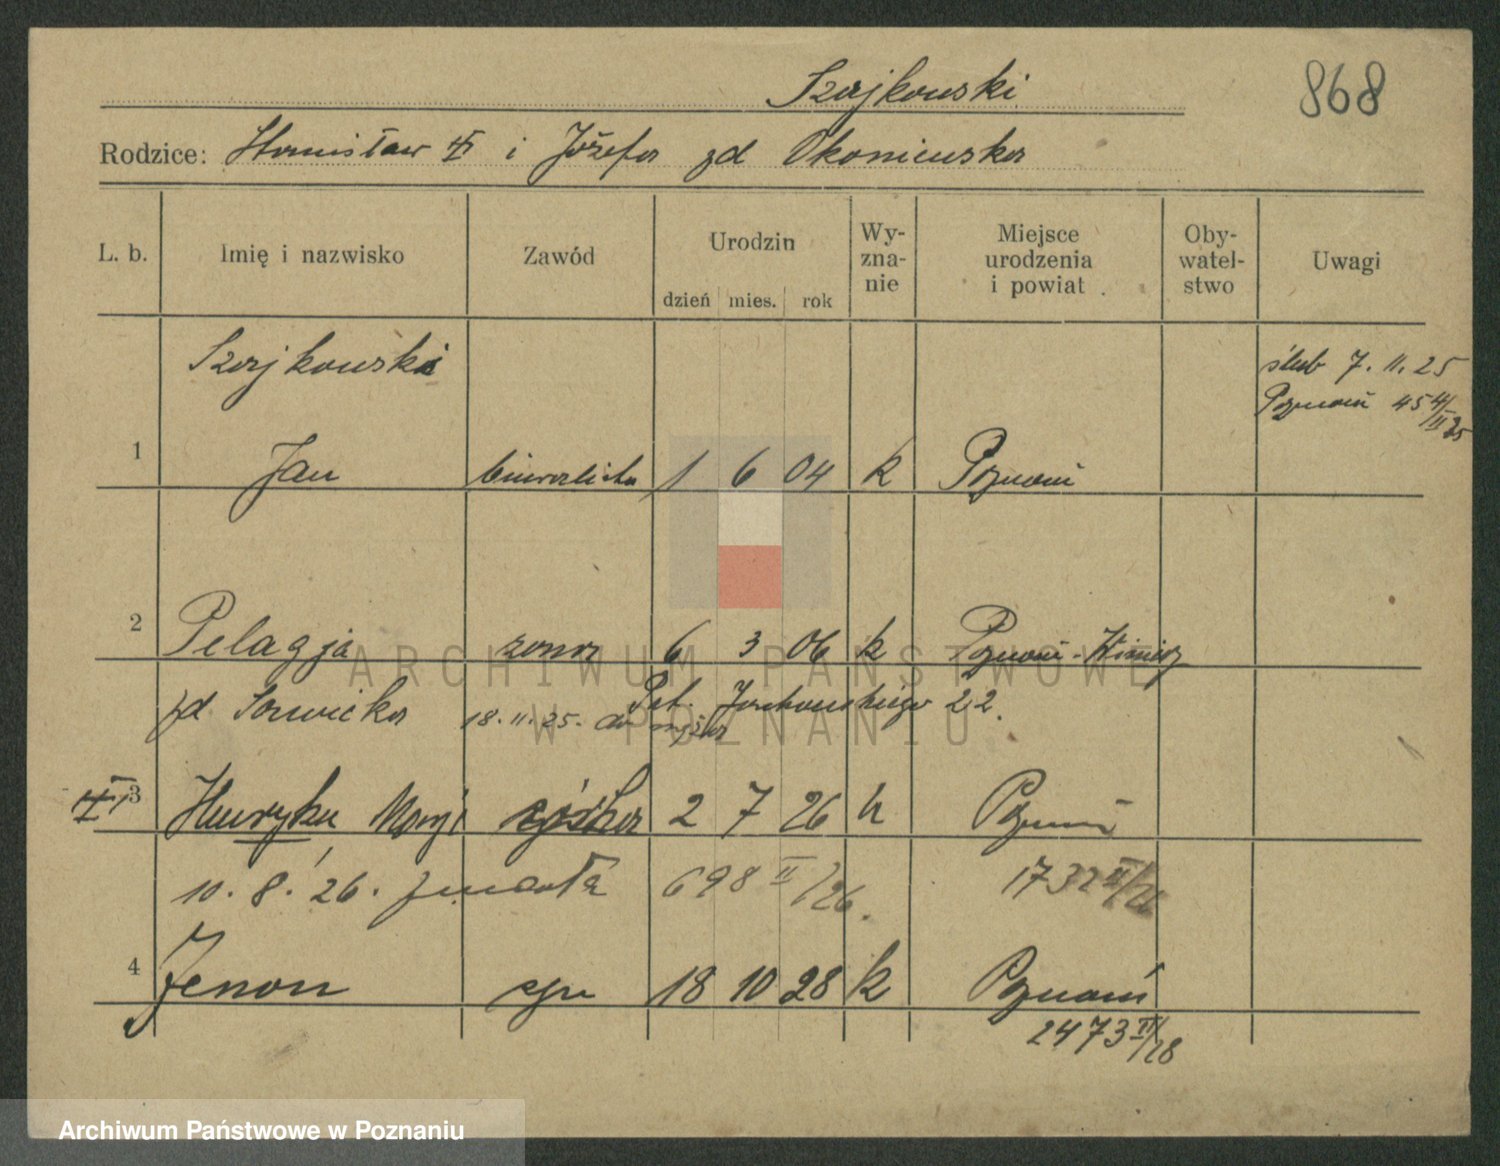 Szajkowski
868
Rodzice: Stanisław i Józefa zd Okoniewska
L. b. Imię i nazwisko Zawód Urodzin dzień mies. rok Wy-zna-nie Miejsce urodzenia i powiat Oby-watel-stwo Uwagi
Szajkowski
ślub 7. 11. 25
Poznań 454/II 25
1 Jan biuralista 1 6 04 k Poznań
2 Pelagja żona 6 3 06 k Poznań-
zd 18. 11. 25. do męża 22.
3 Henryka córka 2 7 26 k Poznań
10. 8. 26. zmarła 698 II/26. 1732 II/26
4 Zenon syn 18 10 28 k Poznań
2473 III/28
ARCHIWUM PAŃSTWOWE
W POZNANIU
Archiwum Państwowe w Poznaniu